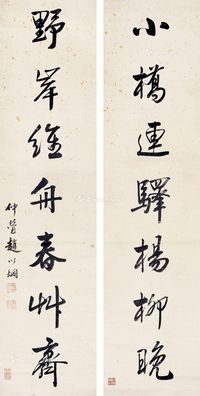 小橋連驛楊柳晚
野岸維舟春艸齊
仲瑩趙以烱